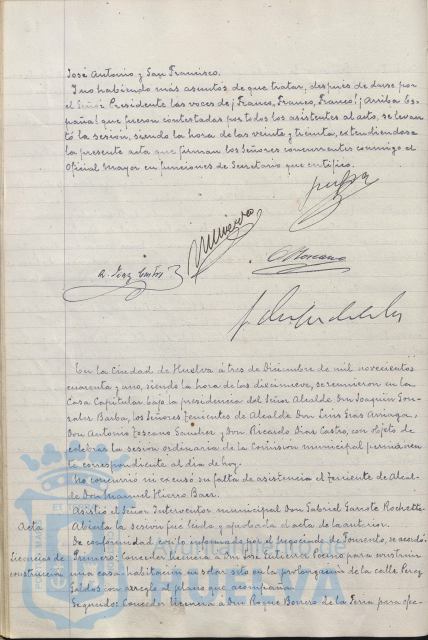 José Antonio y San Francisco.
Y no habiendo más asuntos de que tratar, después de darse por
el Señor Presidente las voces de ¡Franco, Franco, Franco! ¡Arriba Es-
paña! que fueron contestadas por todos los asistentes al acto, se levan
tó la sesión, siendo la hora de las veinte y treinta, extendiendose
la presente acta que firman los Señores concurrentes conmigo el
Oficial Mayor en funciones de Secretario que certifico.
A. Toscano
R. Diaz Castro
En la Ciudad de Huelva á tres de Diciembre de mil novecientos
cuarenta y uno, siendo la hora de las diecinueve, se reunieron en la
Casa Capitular bajo la presidencia del Señor Alcalde Don Joaquin Gon-
zalez Barba, los Señores Tenientes de Alcalde Don Luis Gras Arriaga,
Don Antonio Toscano Sanchez y Don Ricardo Diaz Castro, con objeto de
celebrar la sesión ordinaria de la Comision municipal permanen
te correspondiente al dia de hoy.
No concurrió ni excusó su falta de asistencia el Teniente de Alcal-
de Don Manuel Hierro Baez.
Asistió el Señor Interventor municipal Don Gabriel Garrote Rochette.
Acta Abierta la sesión fué leida y aprobada el acta de la anterior.
De conformidad con lo informado por el Negociado de Fomento, se acordó:
Licencias de Primero: Conceder licencia a Don José Gutierrez Pocino para construir
construccion una casa-habitación en solar sito en la prolongación de la calle Perez
Galdos con arreglo al plano que acompaña.
Segundo: Conceder licencia á Don Roque Borrero de la Feria para efec-
HUELVA